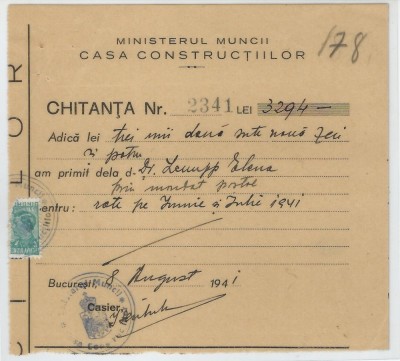 MINISTERUL MUNCII
CASA CONSTRUCȚIILOR
178
CHITANȚA Nr. 2341 LEI 3294-
Adică lei trei mii două sute nouă zeci
și patru
am primit dela d- Dr. Elena
prin mandat poștal
entru: rate pe Iunie și Iulie 1941
București, 8 August 1941
Casier,